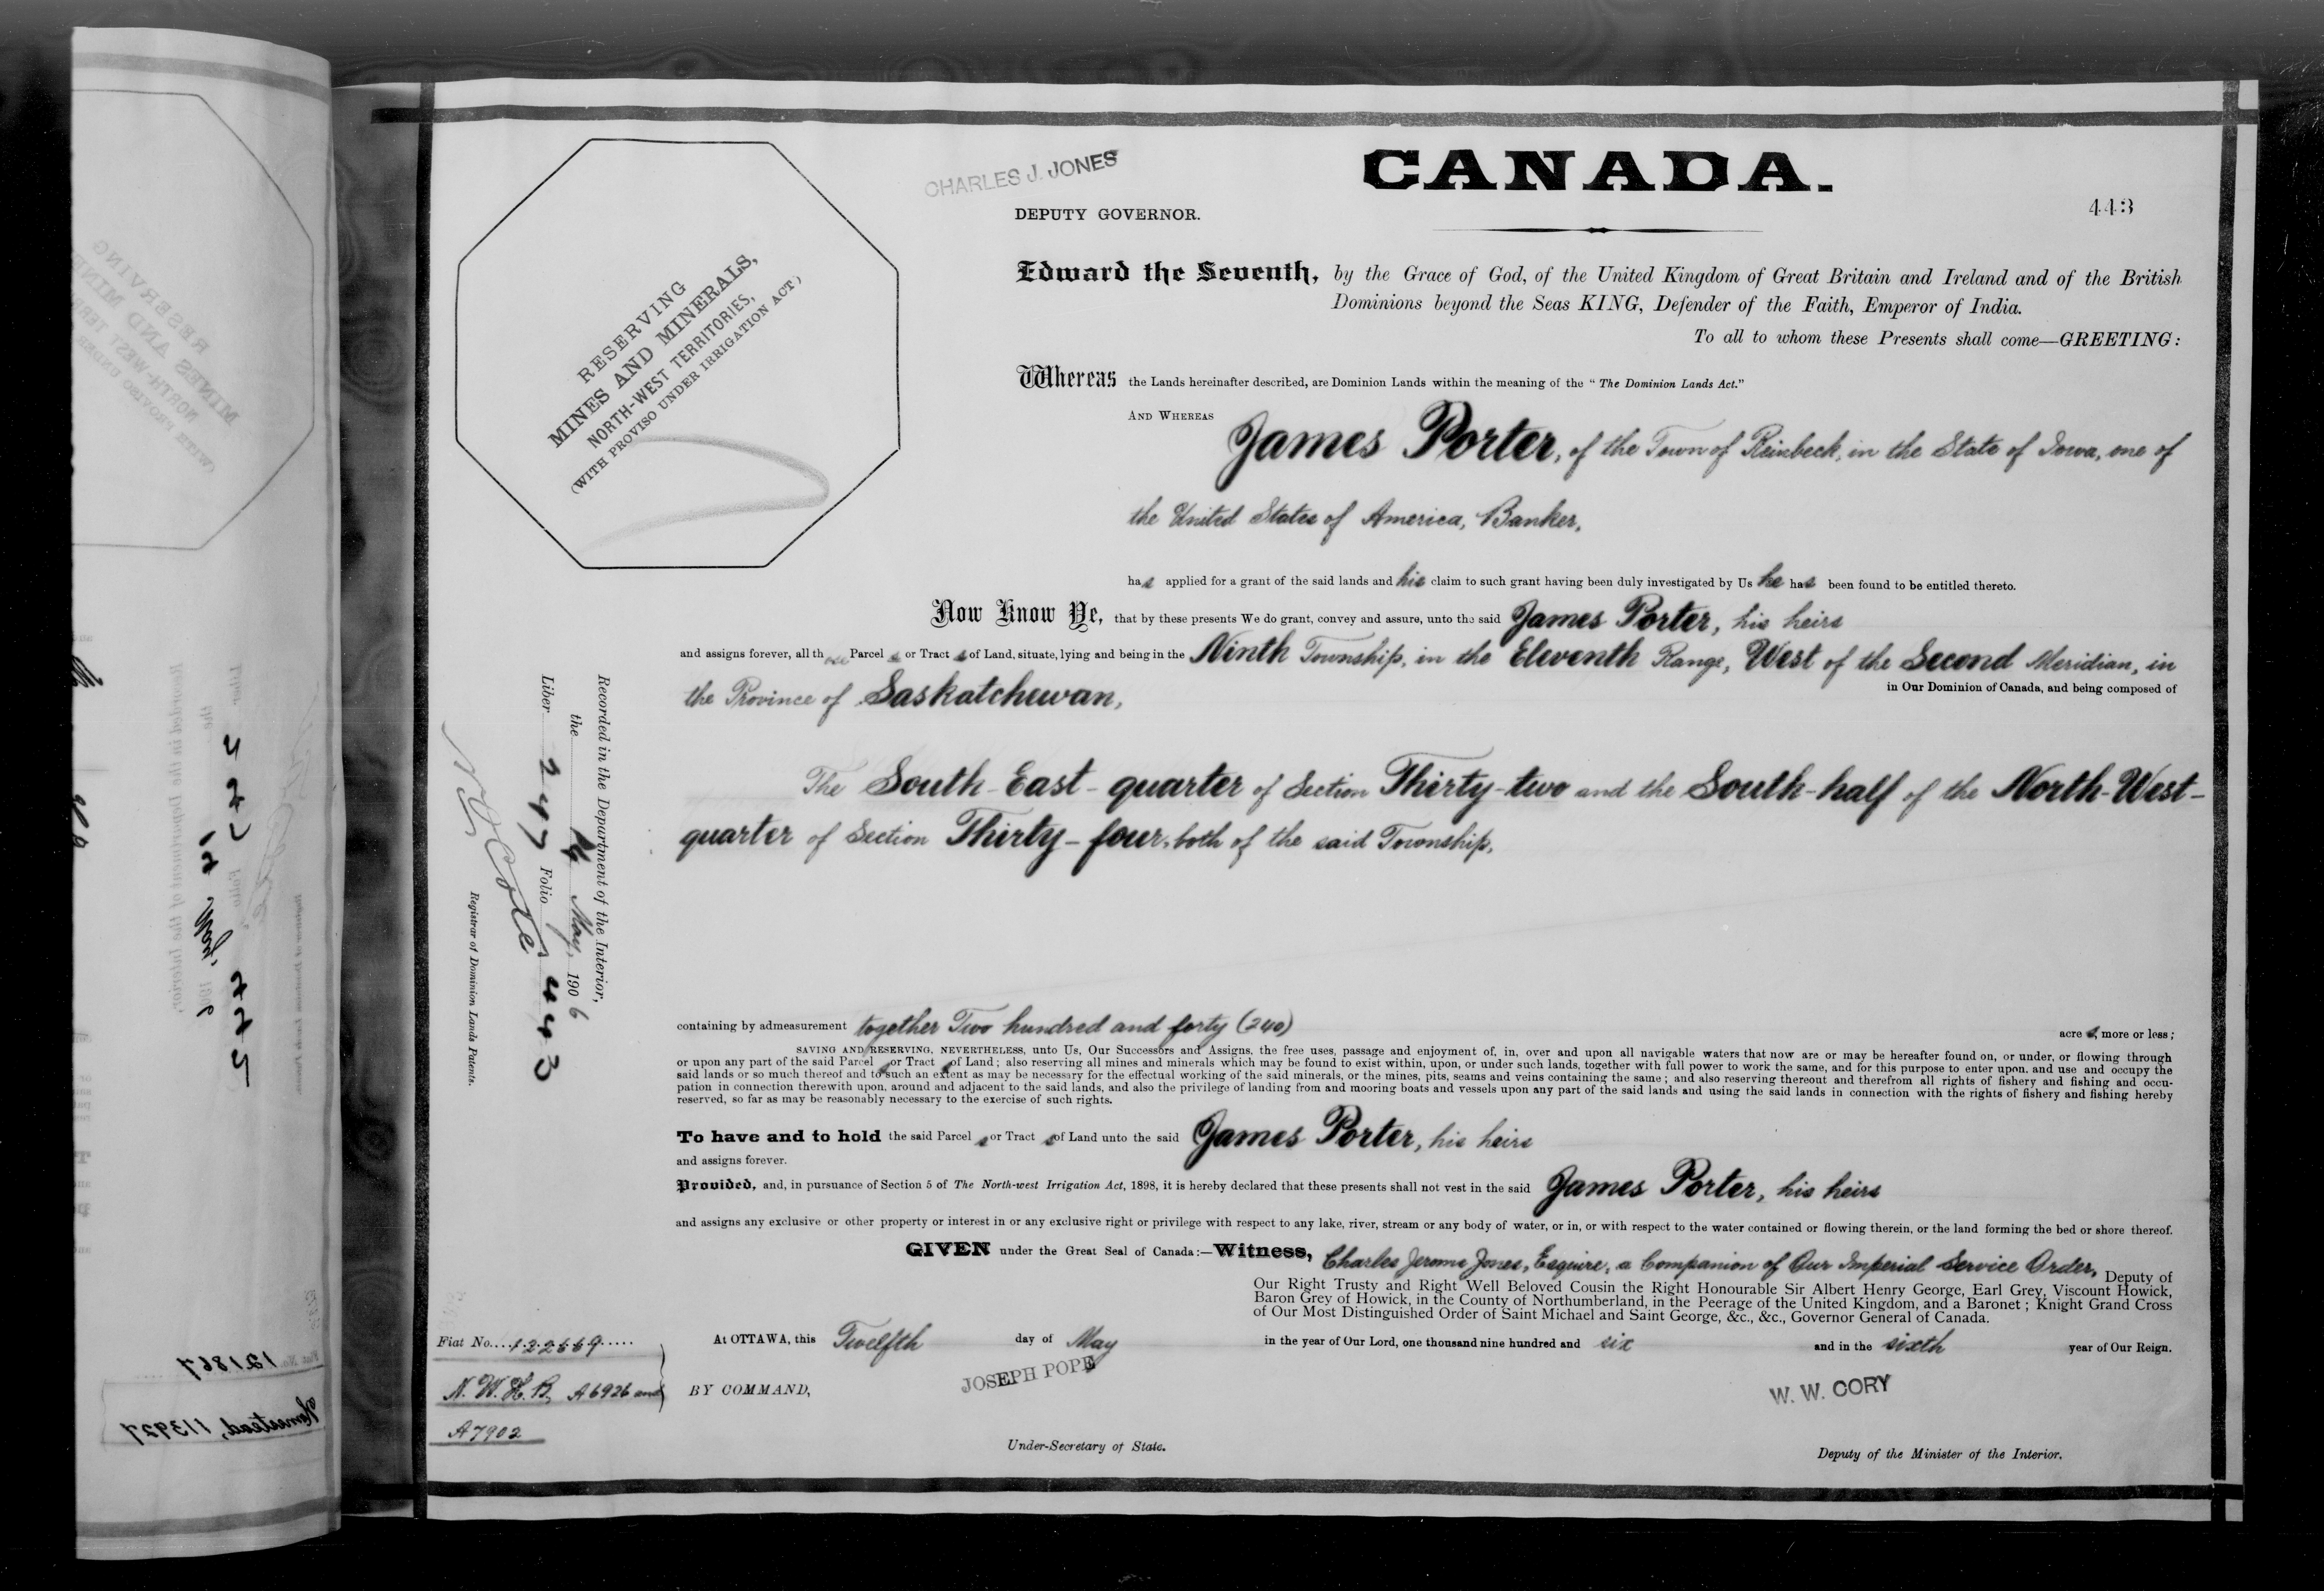 CHARLES J. JONES
CANADA.
DEPUTY GOVERNOR.
443
Edward the Seventh, by the Grace of God, of the United Kingdom of Great Britain and Ireland and of the British
Dominions beyond the Seas KING, Defender of the Faith, Emperor of India.
To all to whom these Presents shall come—GREETING:
RESERVING
MINES AND MINERALS,
NORTH-WEST TERRITORIES,
(WITH PROVISO UNDER IRRIGATION ACT)
Whereas the Lands hereinafter described, are Dominion Lands within the meaning of the "The Dominion Lands Act."
AND WHEREAS
James Porter, of the Town of Reinbeck, in the State of Iowa, one of
the United States of America, Banker,
has applied for a grant of the said lands and his claim to such grant having been duly investigated by Us he has been found to be entitled thereto.
Now Know Ye, that by these presents We do grant, convey and assure, unto the said James Porter, his heirs
and assigns forever, all those Parcels or Tracts of Land, situate, lying and being in the Ninth Township, in the Eleventh Range, West of the Second Meridian, in
the Province of Saskatchewan, in Our Dominion of Canada, and being composed of
The South-East-quarter of Section Thirty-two and the South-half of the North-West-
quarter of Section Thirty-four, both of the said Township,
containing by admeasurement together Two hundred and forty (240) acres, more or less;
SAVING AND RESERVING, NEVERTHELESS, unto Us, Our Successors and Assigns, the free uses, passage and enjoyment of, in, over and upon all navigable waters that now are or may be hereafter found on, or under, or flowing through
or upon any part of the said Parcels or Tracts of Land; also reserving all mines and minerals which may be found to exist within, upon, or under such lands, together with full power to work the same, and for this purpose to enter upon, and use and occupy the
said lands or so much thereof and to such an extent as may be necessary for the effectual working of the said minerals, or the mines, pits, seams and veins containing the same; and also reserving thereout and therefrom all rights of fishery and fishing and occu-
pation in connection therewith upon, around and adjacent to the said lands, and also the privilege of landing from and mooring boats and vessels upon any part of the said lands and using the said lands in connection with the rights of fishery and fishing hereby
reserved, so far as may be reasonably necessary to the exercise of such rights.
To have and to hold the said Parcels or Tracts of Land unto the said James Porter, his heirs
and assigns forever.
Provided, and, in pursuance of Section 5 of The North-west Irrigation Act, 1898, it is hereby declared that these presents shall not vest in the said James Porter, his heirs
and assigns any exclusive or other property or interest in or any exclusive right or privilege with respect to any lake, river, stream or any body of water, or in, or with respect to the water contained or flowing therein, or the land forming the bed or shore thereof.
GIVEN under the Great Seal of Canada:—Witness, Charles Jerome Jones, Esquire, a Companion of Our Imperial Service Order, Deputy of
Our Right Trusty and Right Well Beloved Cousin the Right Honourable Sir Albert Henry George, Earl Grey, Viscount Howick,
Baron Grey of Howick, in the County of Northumberland, in the Peerage of the United Kingdom, and a Baronet; Knight Grand Cross
of Our Most Distinguished Order of Saint Michael and Saint George, &c., &c., Governor General of Canada.
At OTTAWA, this Twelfth day of May in the year of Our Lord, one thousand nine hundred and six and in the sixth year of Our Reign.
BY COMMAND,
JOSEPH POPE
W. W. CORY
Under-Secretary of State.
Deputy of the Minister of the Interior.
Recorded in the Department of the Interior,
the May, 1906
Liber 247 Folio 443
Registrar of Dominion Lands Patents.
Fiat No. 122669
N. W. H. B, A6926 and
A7902
Fiat No. 121867
Homestead, 113927